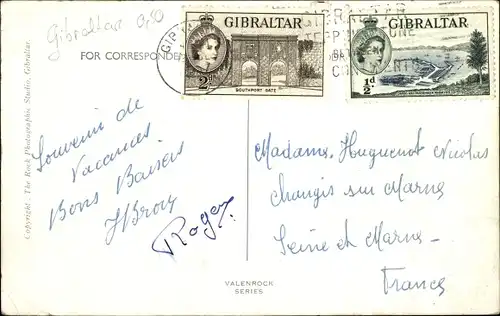 Gibraltar 0,50
GIBRALTAR
2d
SOUTHPORT GATE
GIBRALTAR
½d
FOR CORRESPONDEN
Copyright, The Rock Photographic Studio, Gibraltar.
Souvenir de
Vacances
Bons Baisers
Roger
VALENROCK
SERIES
Madame Huguenot Nicolas
Changis sur Marne
Seine et Marne
France